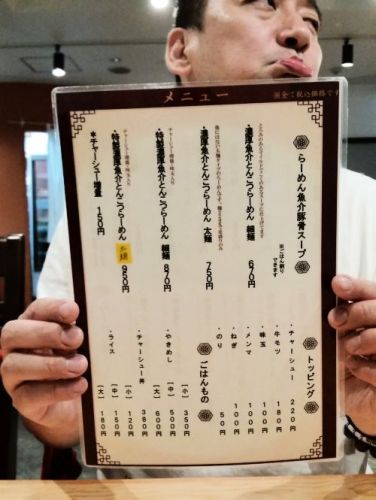 メニュー
※全て税込価格です
らーめん魚介豚骨スープ
※ごはん割り
できます
・濃厚魚介とんこつらーめん 細麺 670円
・濃厚魚介とんこつらーめん 太麺 750円
チャーシュー増量・味玉入り
・特製濃厚魚介とんこつらーめん 細麺 870円
チャーシュー増量・味玉入り
・特製濃厚魚介とんこつらーめん 太麺 950円
＊チャーシュー増量 150円
トッピング
・チャーシュー 220円
・牛モツ 180円
・味玉 100円
・メンマ 100円
・ねぎ 100円
・のり 50円
ごはんもの
・やきめし [小] 350円
[中] 500円
[大] 600円
・チャーシュー丼 380円
・ライス [小] 120円
[中] 150円
[大] 180円